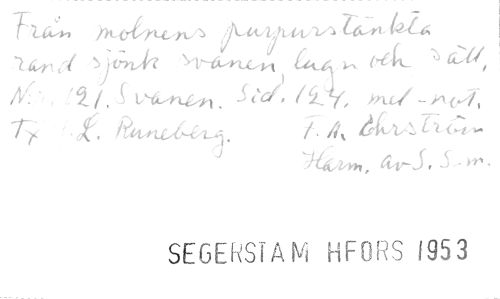 Från molnens purpurstänkta
rand sjönk svanen, lugn och säll,
Nr. 121. Svanen. Sid. 124. mel-not.
Tx L. Runeberg. F. A. Ehrström
Harm. av S. S-m.
SEGERSTAM HFORS 1953